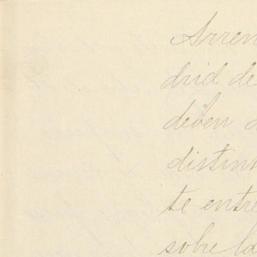 Arren
drid de
deben
distin
te entre
sobre la